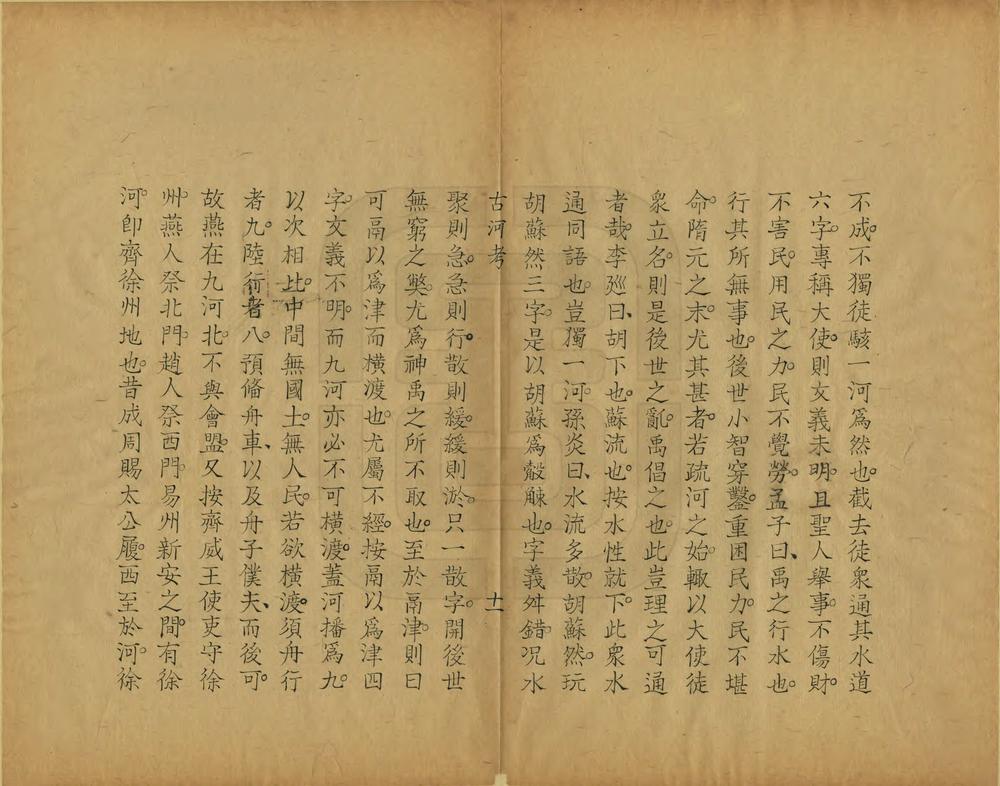 不成。不獨徒駭一河爲然也。截去徒衆通其水道
六字。專稱大使。則文義未明。且聖人舉事。不傷財。
不害民。用民之力。民不覺勞。孟子曰、禹之行水也。
行其所無事也。後世小智穿鑿。重困民力。民不堪
命。隋元之末。尤其甚者。若疏河之始。輙以大使徒
衆立名。則是後世之亂。禹倡之也。此豈理之可通
者哉。李廵曰、胡下也。蘇流也。按水性就下。此衆水
通同語也。豈獨一河。孫炎曰、水流多散。胡蘇然。玩
胡蘇然三字。是以胡蘇爲觳觫也。字義舛錯。况水
古河考 十一
聚則急。急則行。散則緩。緩則淤。只一散字。開後世
無窮之獘。尤爲神禹之所不取也。至於鬲津。則曰
可鬲以爲津而橫渡也。尤屬不經。按鬲以爲津四
字。文義不明。而九河亦必不可橫渡。蓋河播爲九。
以次相比。中間無國土。無人民。若欲橫渡。須舟行
者九。陸行者八。預備舟車、以及舟子僕夫、而後可。
故燕在九河北。不與會盟。又按齊威王使吏守徐
州。燕人祭北門。趙人祭西門。易州新安之間。有徐
河。卽齊徐州地也。昔成周賜太公履。西至於河。徐